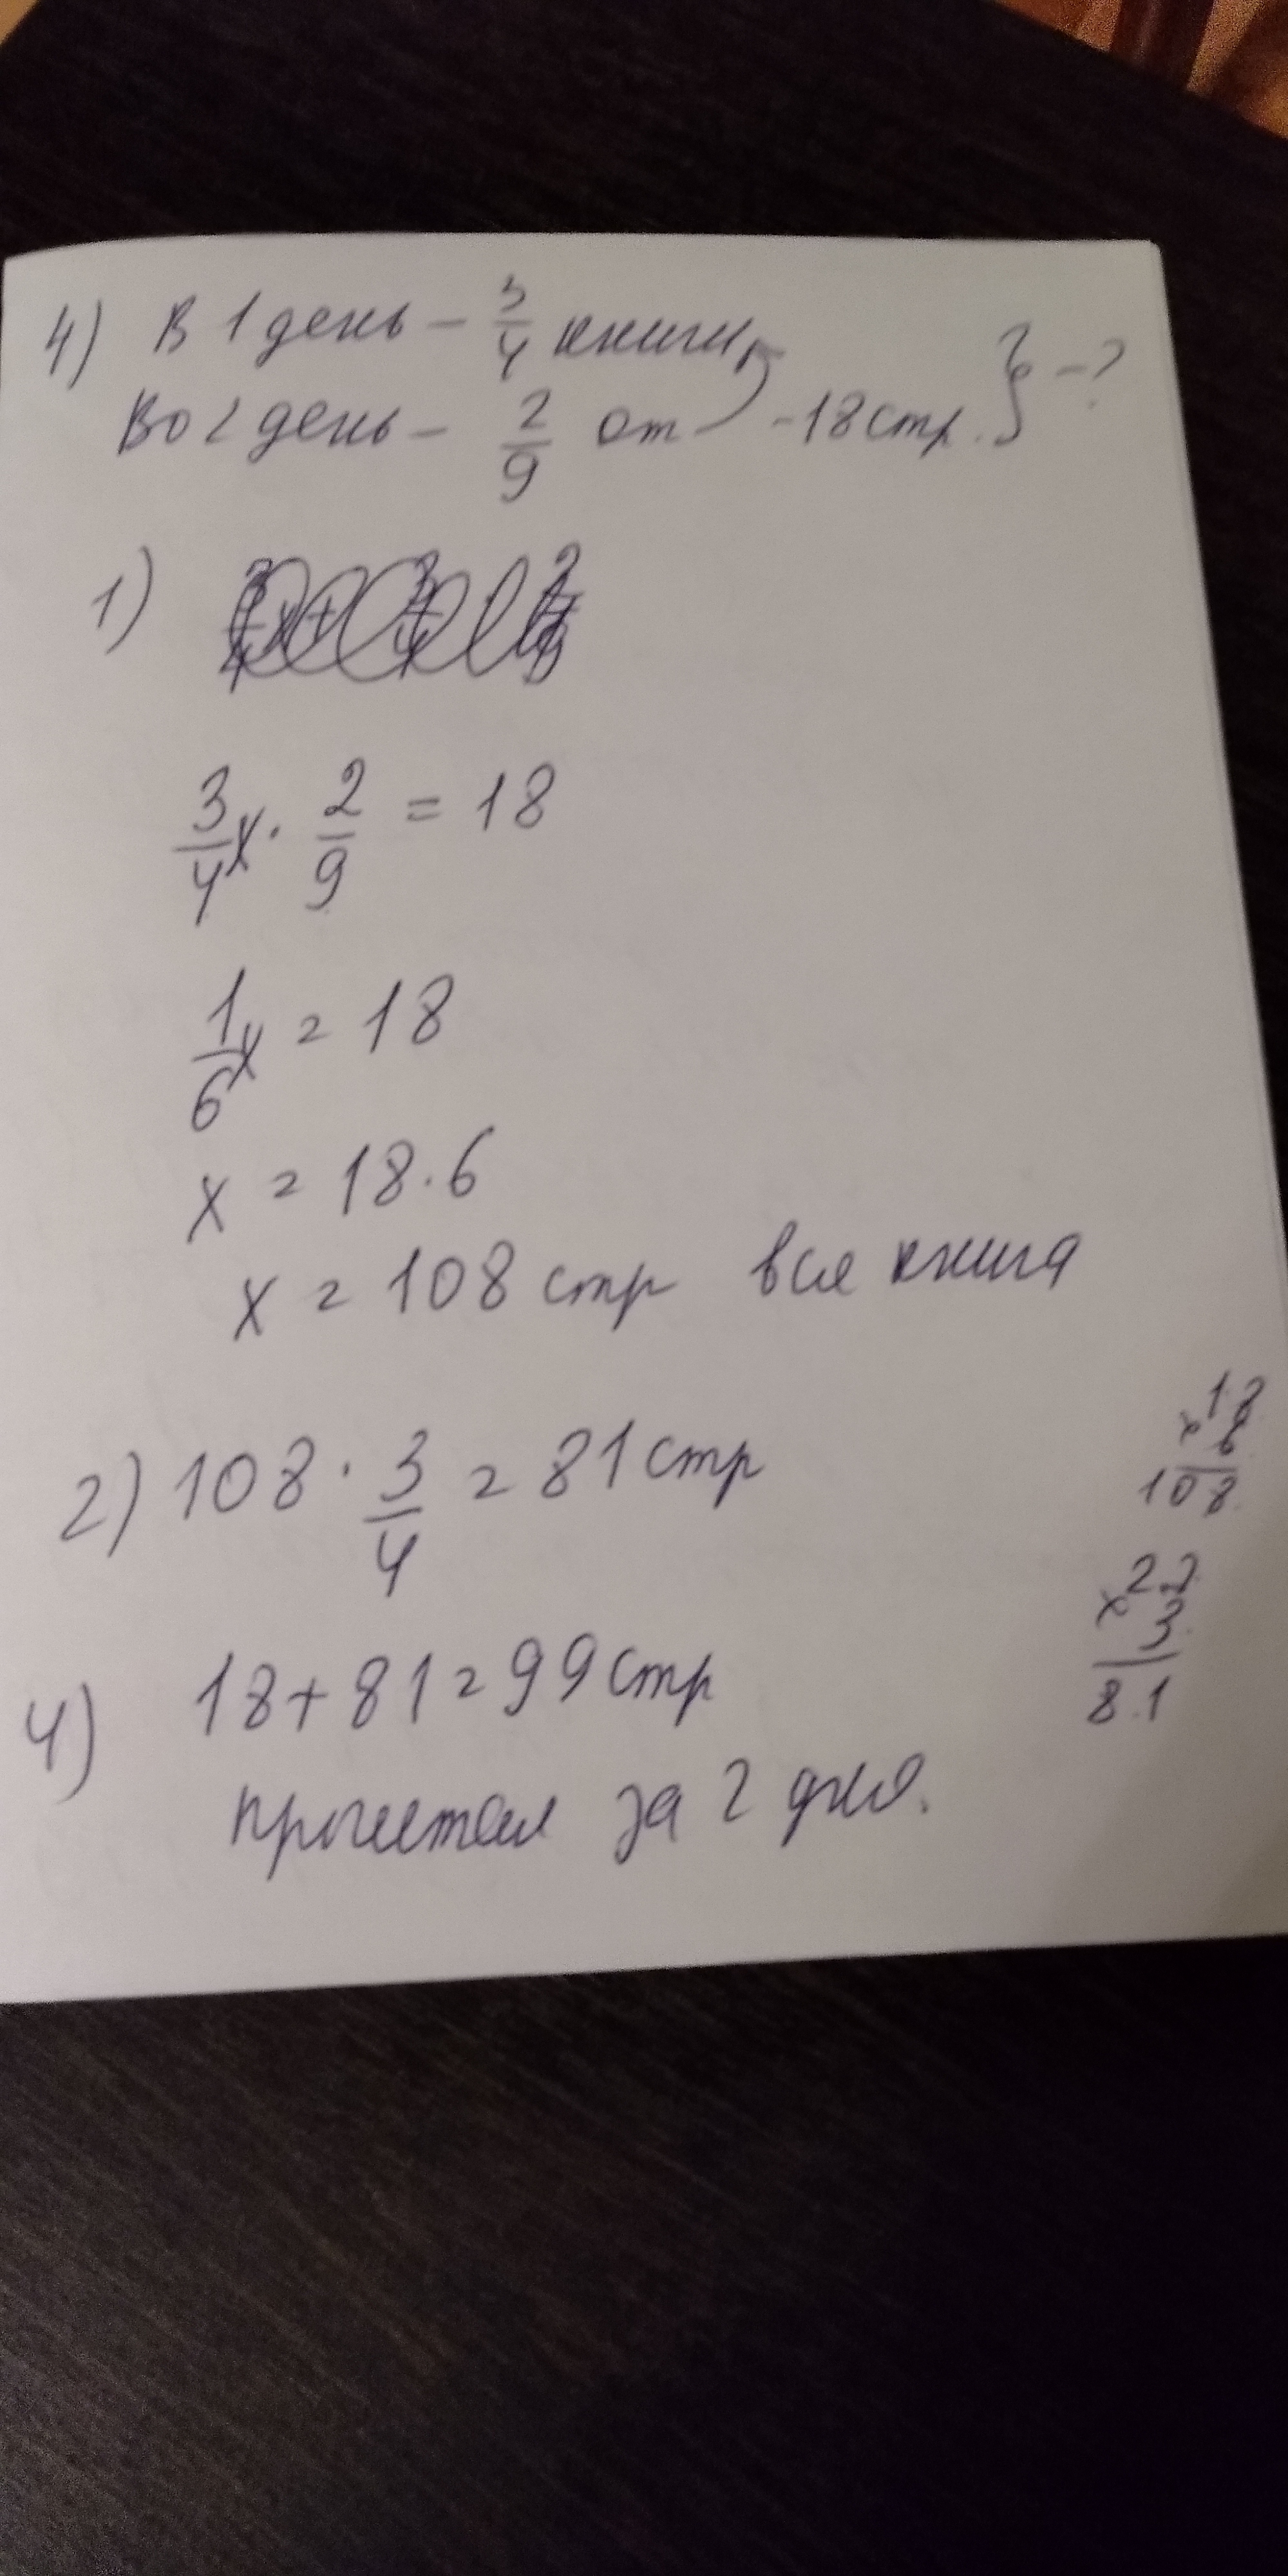 4) В 1 день - 3/4 книги
Во 2 день - 2/9 от - 18 стр. } - ?
1)
3/4 x · 2/9 = 18
1/6 x = 18
x = 18 · 6
x = 108 стр вся книга
2) 108 · 3/4 = 81 стр
4) 18 + 81 = 99 стр
прочитал за 2 дня.
x 18
6
108
x 2.2
3
8.1